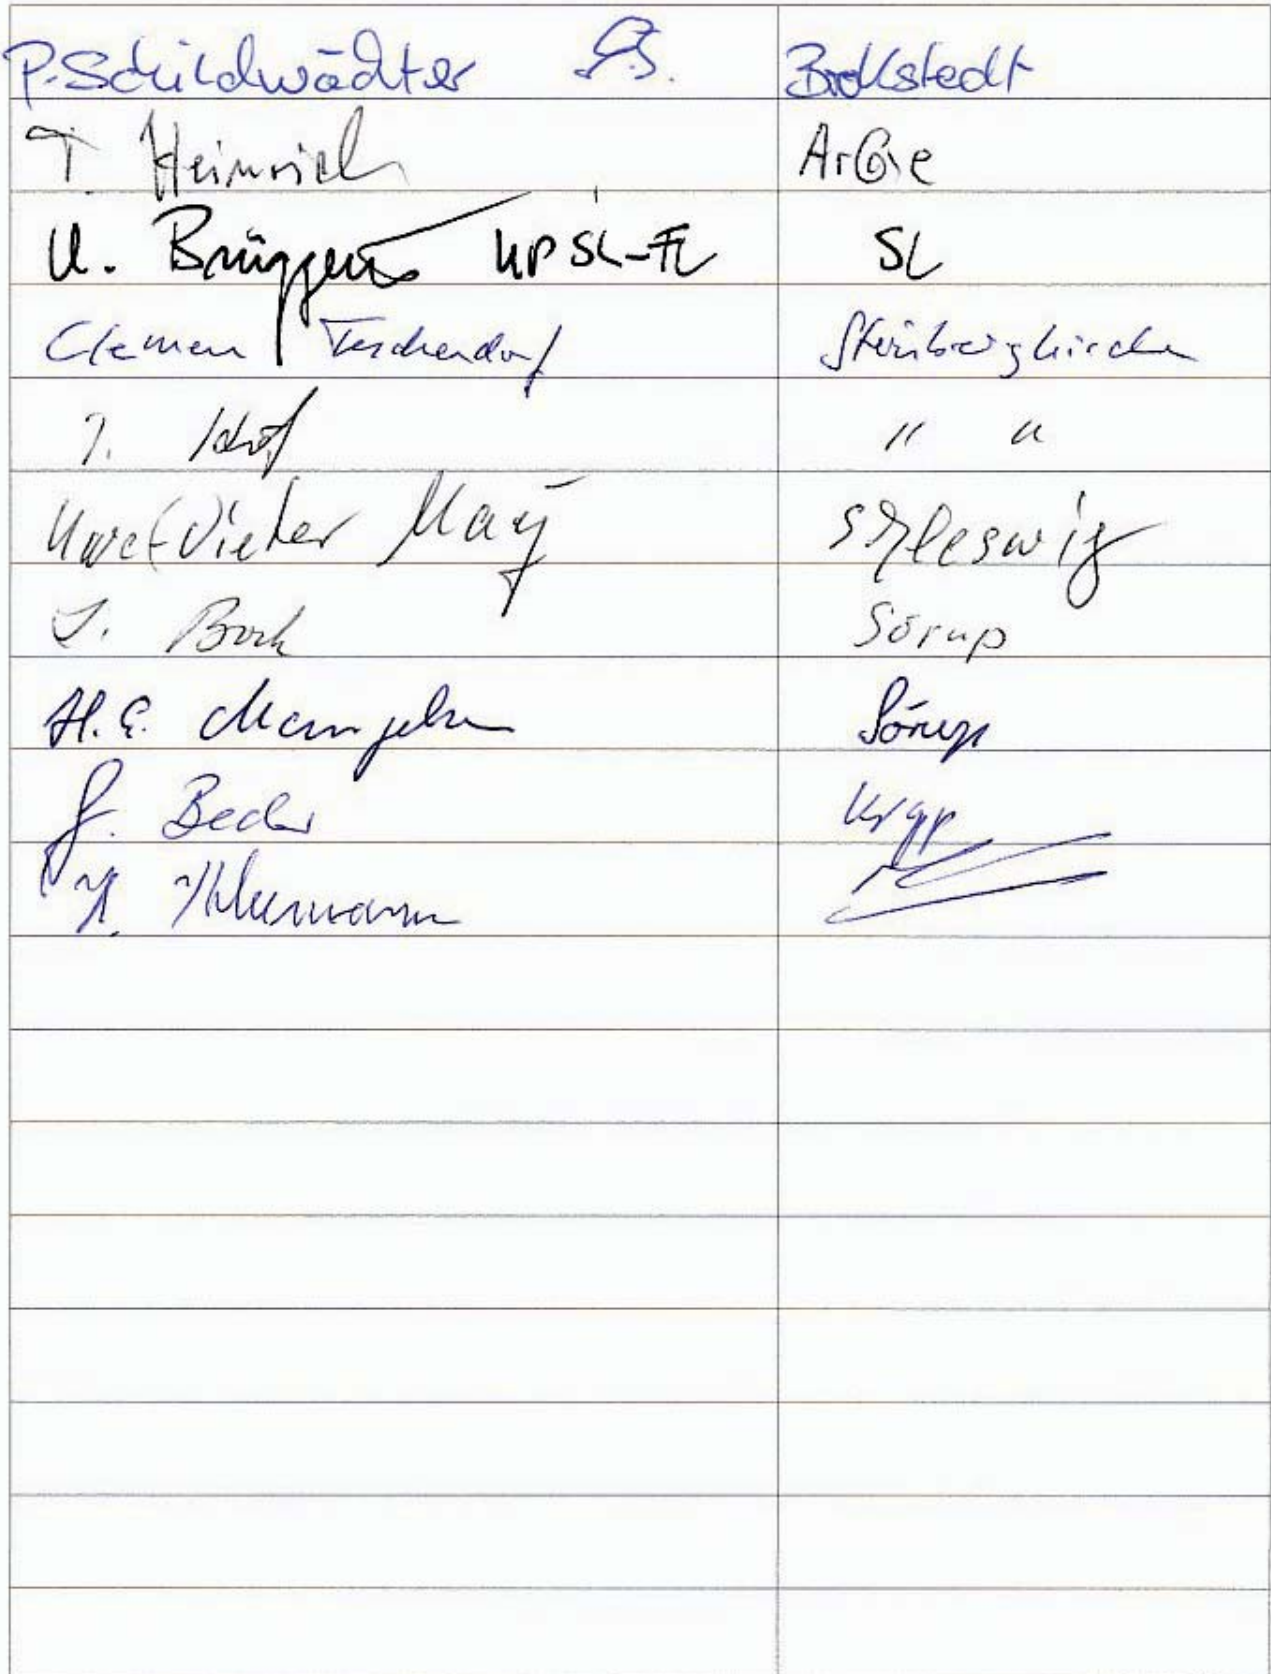 P. Schildwächter Brokstedt
T. Heinrich ArGe
U. Brüggen KP SL-FL SL
Clemens Teschendorf Steinbergkirche
J. " "
Dieter May Schleswig
J. Bock Sörup
H. E. Mangelsen Sörup
J. Becker
H.